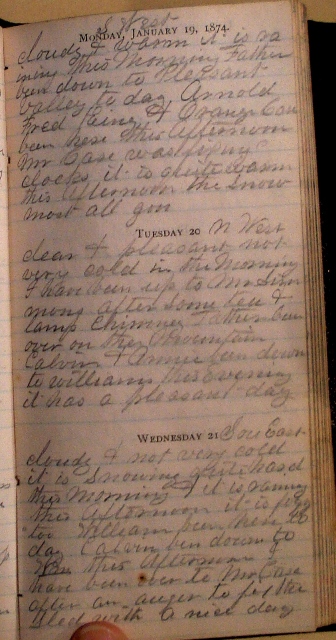 S West
MONDAY, JANUARY 19, 1874.
cloudy & warm it is ra
ining this Morning Father
been down to Pleasant
valley to day Arnold
Fred & Orange Cou
been here this afternoon
Mr Case was fixing
clocks it is quite warm
this afternoon the snow
most all gon
TUESDAY 20 N West
clear & pleasant not
very cold in the Morning
I have been up to Mr Sim
mons after some tea &
lamp Chimney Father been
over on the Mountain
Calvin & Annie been down
to williams this Evening
it has a pleasant day
WEDNESDAY 21 Sou East
cloudy & not very cold
it is snowing quite hard
this Morning & it is raining
this afternoon it is fogy
too William been here to
day Calvin ben down to
this afternoon I
have been over to Mr Case
after an auger to fix the
sled with a nice day